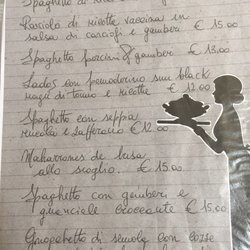 Spaghetto
Raviolo di ricotta vaccina in
salsa di carciofi e gamberi € 15.00
Spaghetto porcini & gamberi € 13.00
Lados con pomodorino sun black
ragù di tonno e ricotta € 12.00
Spaghetto con seppia
rucola e zafferano € 12.00
Maharrones de busa
allo scoglio. € 15.00
Spaghetto con gamberi e
guanciale croccante € 15.00
Gnocchetto di semola con cozze